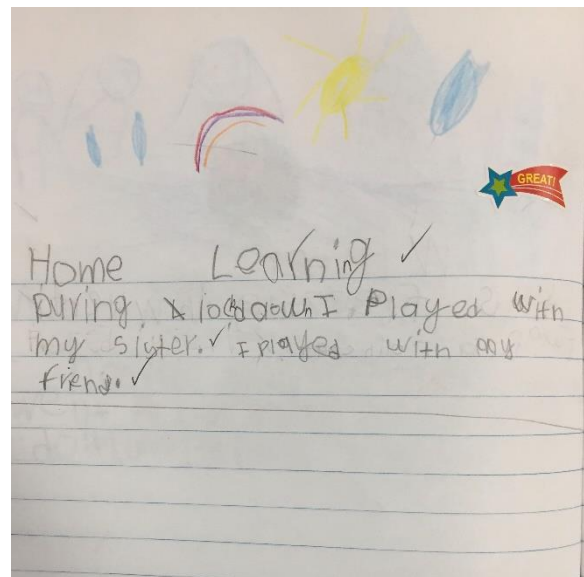 GREAT!
Home Learning
During lockdown I Played with
my sister. I played with my
friend.